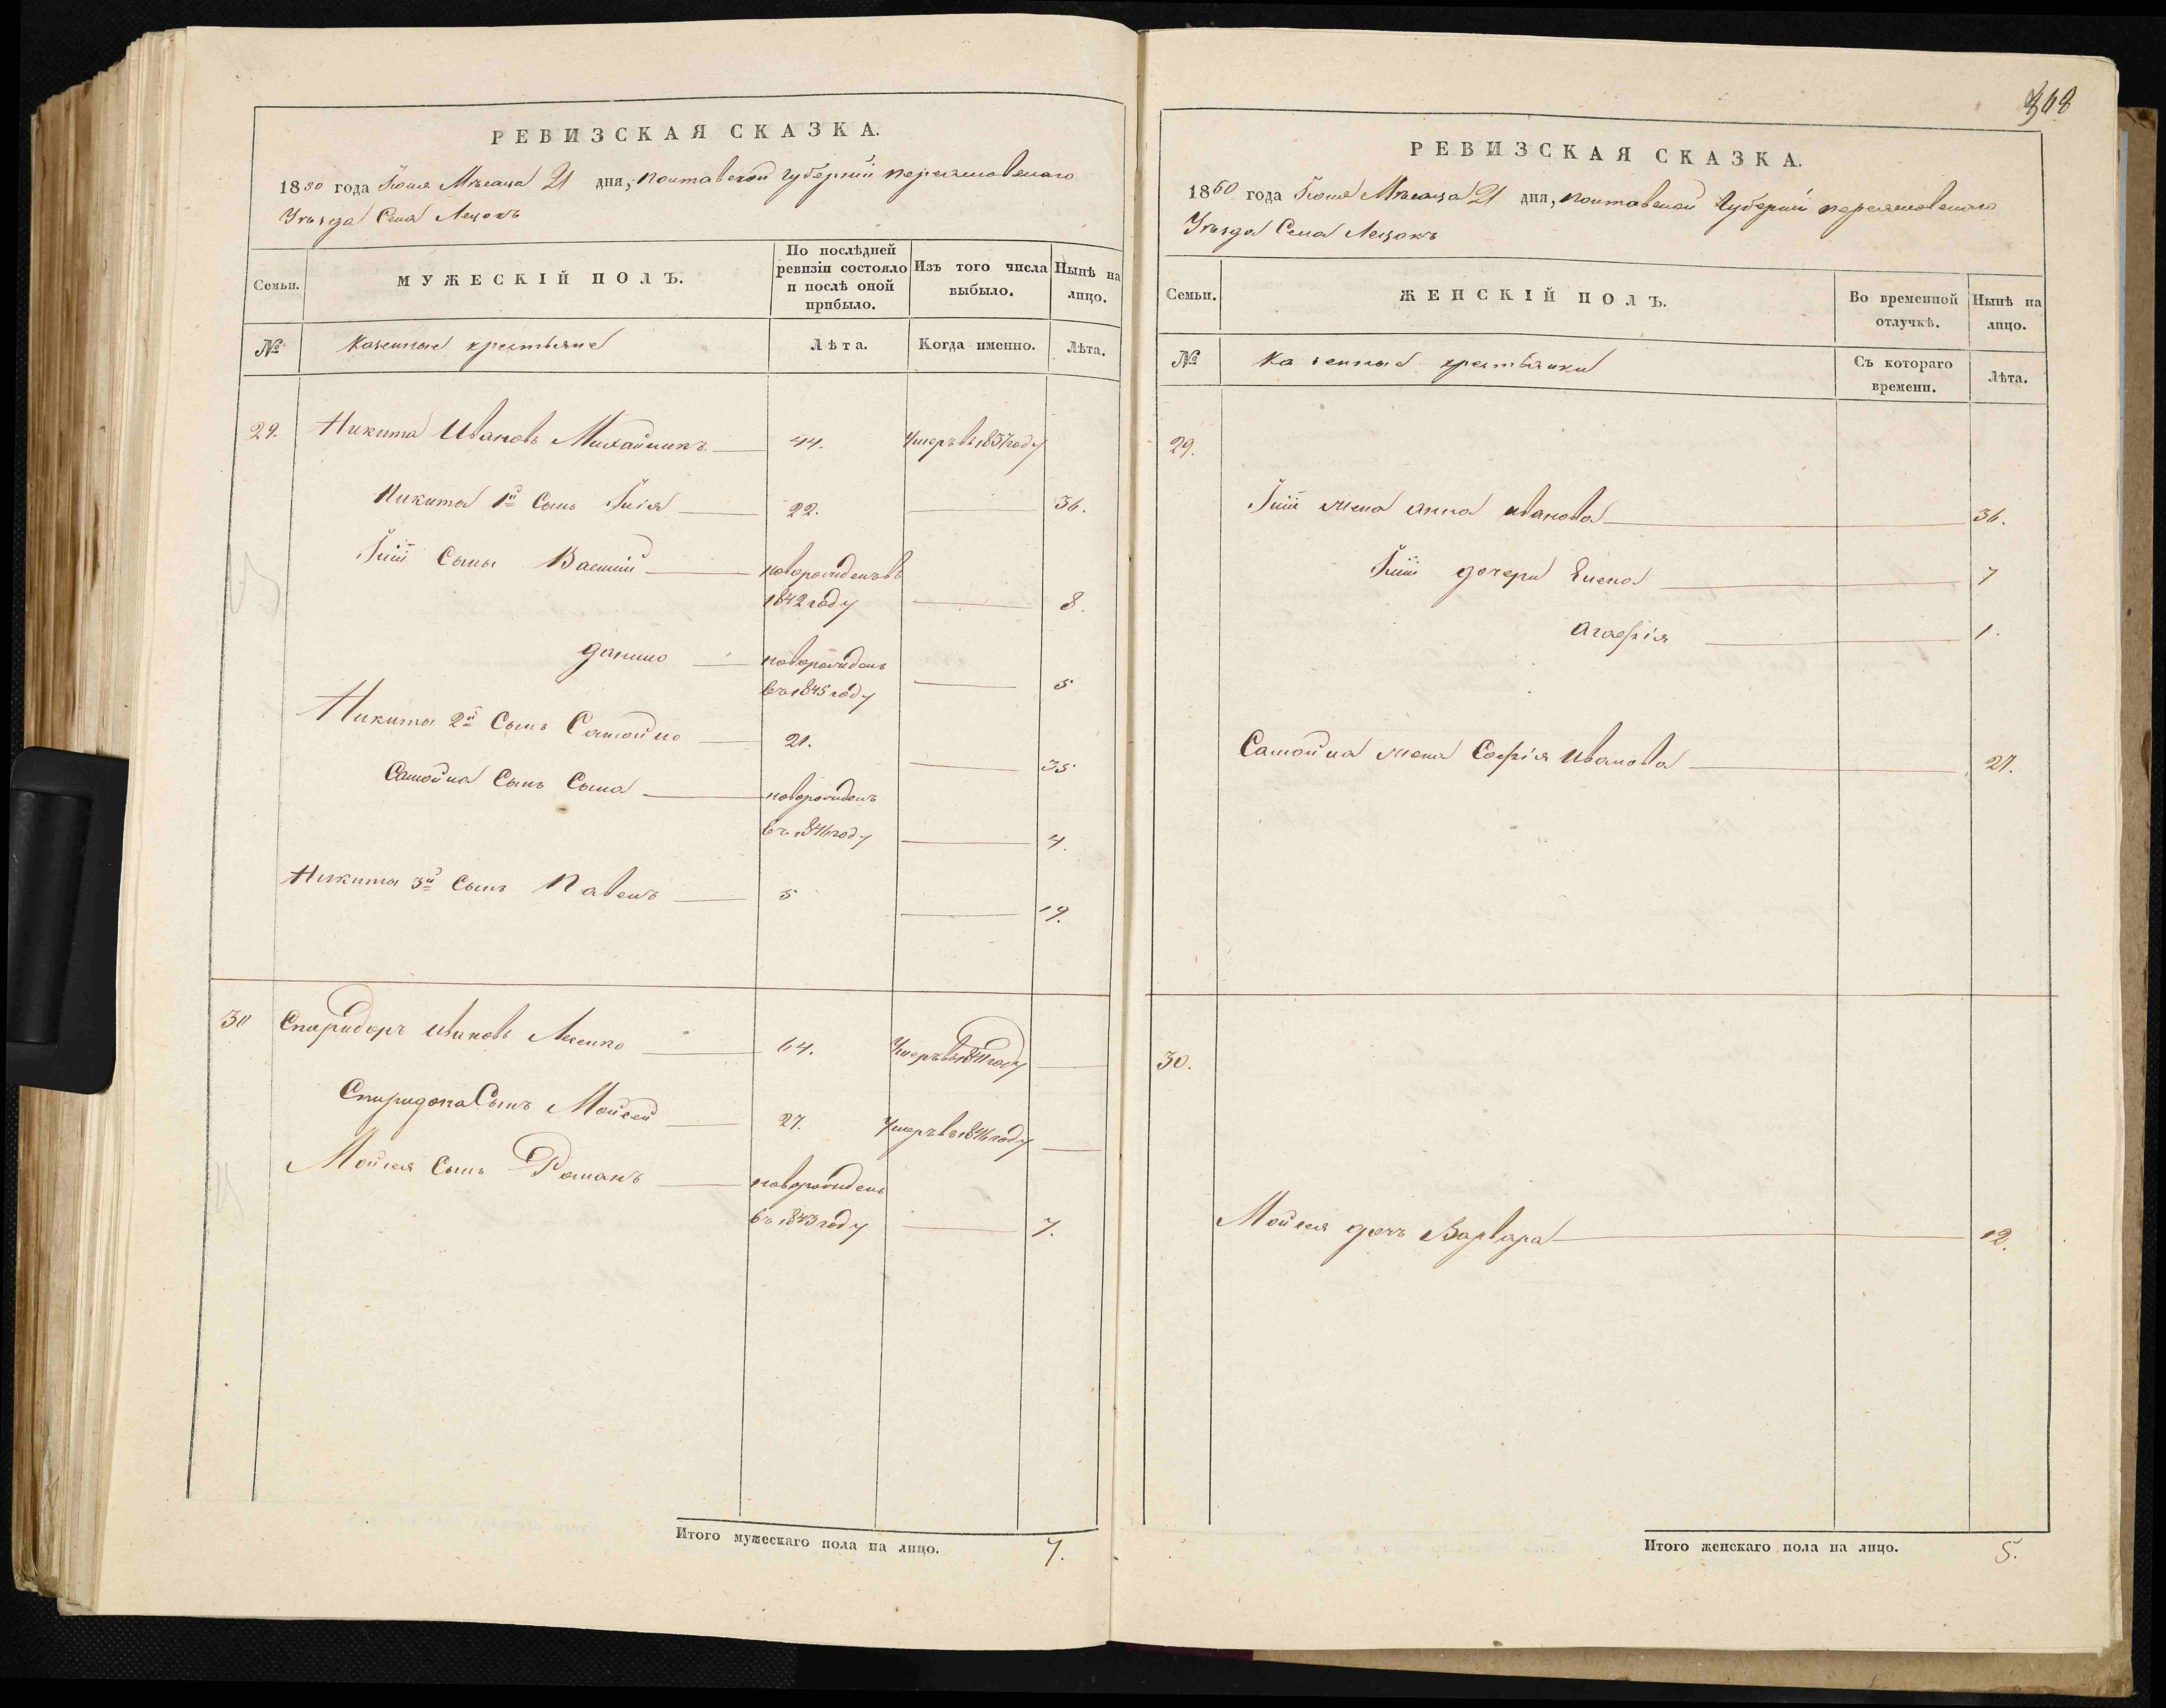 РЕВИЗСКАЯ СКАЗКА.
1850 года Іюня Мѣсяца 21 дня, Полтавской Губерніи Переяславскаго
Уѣзда Села Лецокъ
Семьи. МУЖЕСКІЙ ПОЛЪ. По послѣдней ревизіи состояло и послѣ оной прибыло. Изъ того числа выбыло. Нынѣ на лицо.
№ Казенные крестьяне Лѣта. Когда именно. Лѣта.
29. Никита Ивановъ Михайликъ 44. Умеръ въ 1837 году
Никита 1й Сынъ Илія 22. 36.
Иліи Сыны Василій новорожденъ въ
1842 году 8.
Данило новорожденъ
въ 1845 году 5
Никита 2й Сынъ Самойло 21. 35
Самойла Сынъ Сыла новорожденъ
въ 1846 году 4.
Никита 3й Сынъ Павелъ 5 19.
30 Спиридонъ Ивановъ 64. Умеръ въ 1841 году
Спиридона Сынъ Мойсей 27. Умеръ въ 1846 году
Мойсея Сынъ Романъ новорожденъ
въ 1843 году 7.
Итого мужескаго пола на лицо. 7.
368
РЕВИЗСКАЯ СКАЗКА.
1850 года Іюня Мѣсяца 21 дня, Полтавской Губерніи Переяславскаго
Уѣзда Села Лецокъ
Семьи. ЖЕНСКІЙ ПОЛЪ. Во временной отлучкѣ. Нынѣ на лицо.
№ Казенные крестьянки Съ котораго времени. Лѣта.
29.
Иліи жена Анна Иванова 36.
Иліи дочери Елена 7
Агафія 1.
Самойла жена Софія Иванова 27.
30.
Мойсея дочь Варвара 12.
Итого женскаго пола на лицо. 5.